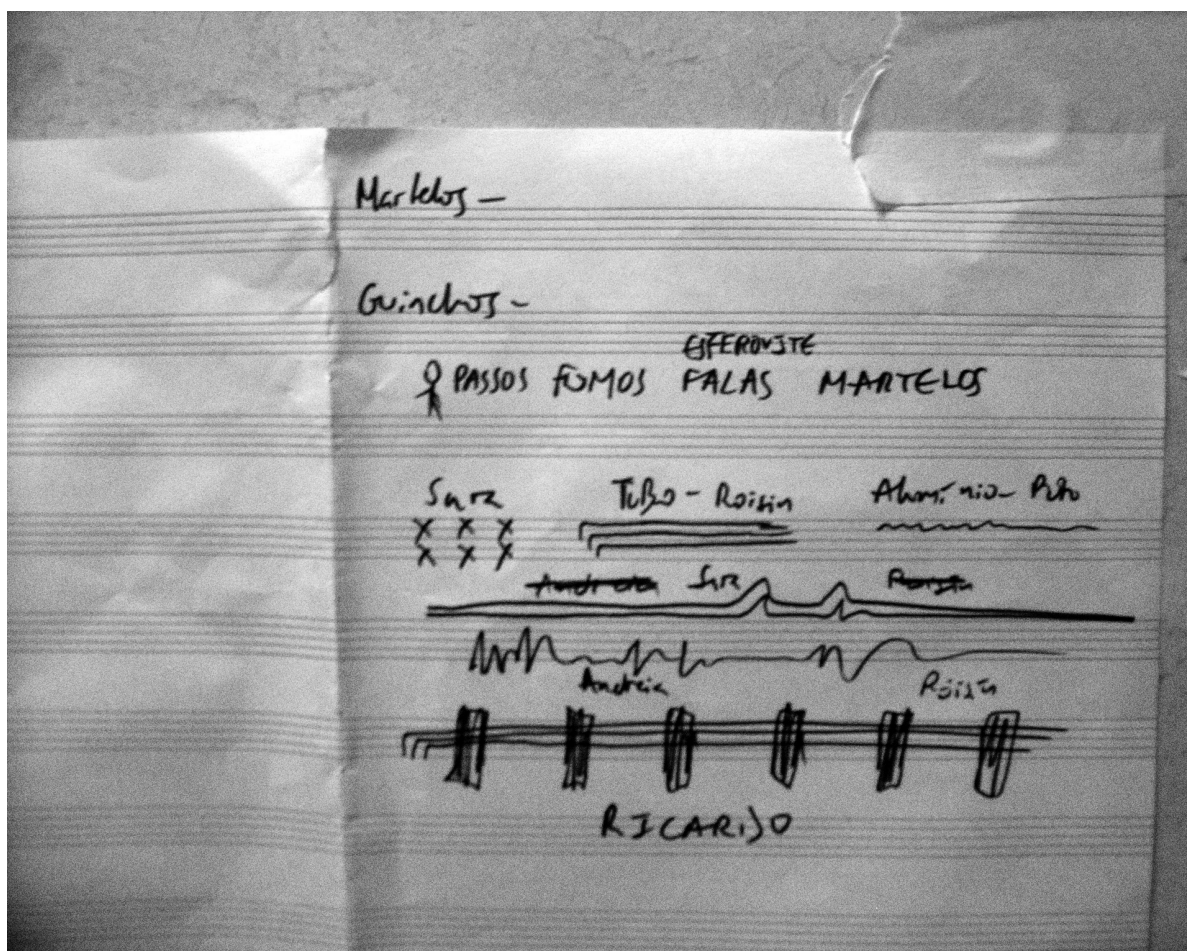 Martelos -
Guinchos -
ESFEROVITE
PASSOS FUMOS FALAS MARTELOS
Sara TUBO - Roisin Alumínio -
Andreia Sara Roisin
Andreia Róisín
RICARDO